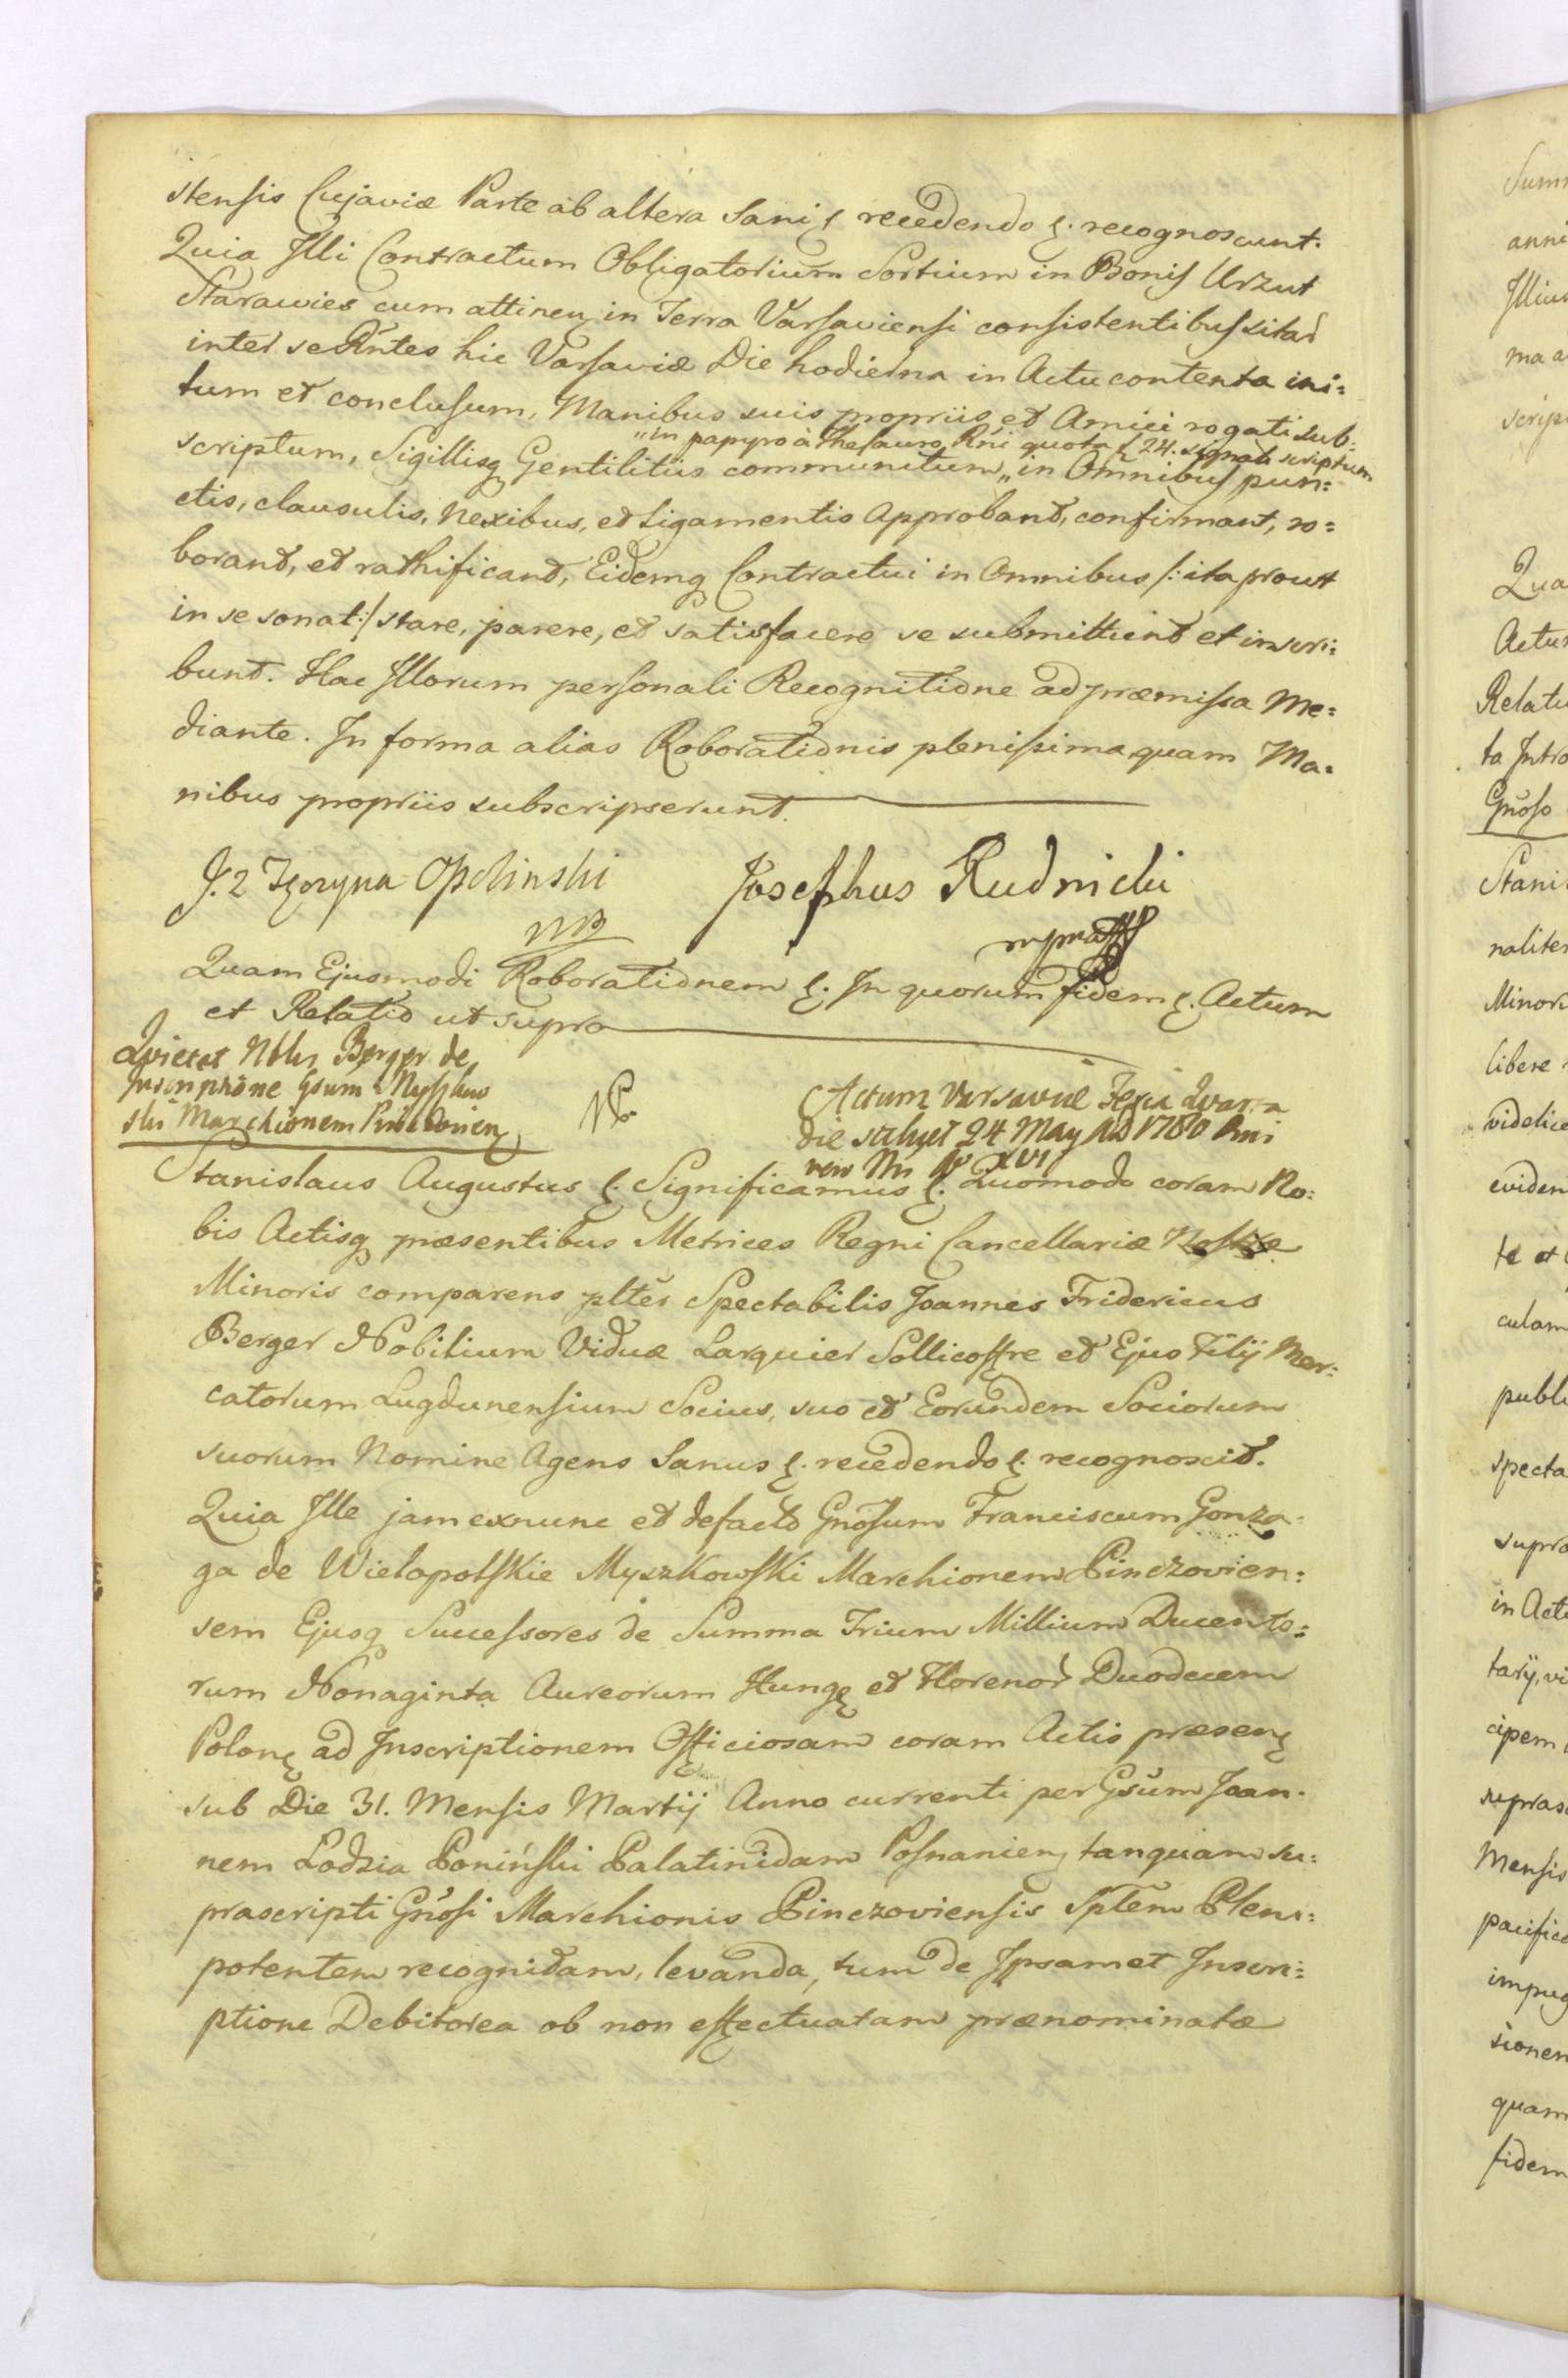 stensis Cujaviæ Parte ab altera Sani &. recedendo &. recognoscunt.
Quia Illi Contractum Obligatorium Sortium in Bonis Urzut
Starawies cum attinen. in Terra Varsaviensi consistentibus sitar
inter se Rñtes hic Varsaviæ Die hodierna in Actu contenta ini=
tum et conclusum, Manibus suis propriis et Amici rogati sub=
„in papyro à Thesauro Rni quota 24. signata scriptum
scriptum, Sigillisq Gentilitiis communitum „in Omnibus pun=
ctis, clausulis, nexibus, et ligamentis Approbant, confirmant, ro=
borant, et rathificant, Eidemq Contractui in Omnibus /: ita prout
in se sonat :/ stare, parere, et satisfacere se submittunt et inscri=
bunt. Hac Illorum personali Recognitione ad præmissa Me=
diante. In forma alias Roborationis plenissima quam Ma=
nibus propriis subscripserunt.
Opolinski
Josephus Rudnicki
mpria
Quam Ejusmodi Roborationem &. In quorum fidem &. Actum
et Relatio ut supra
Quietat Nblis Berger de
Inscriptione Gsum Myszkow
ski Marchionem Pinczovien
Actum Varsaviæ Feria Quarta
die scilicet 24 May AD 1780 Rni
vero Nri XVI
Stanislaus Augustus &. Significamus &. Quomodo coram No=
bis Actisq præsentibus Metrices Regni Cancellariæ Nostræ
Minoris comparens pltẽr Spectabilis Joannes Fridericus
Berger Nobilium Viduæ Larguier Sollicoffre et Ejus Filij Mer=
catorum Lugdunensium Socius, suo et Eorundem Sociorum
suorum Nomine Agens Sanus &. recedendo &. recognoscit.
Quia Ille jam exnunc et defacto Gnõsum Franciscum Gonza=
ga de Wielopolskie Myszkowski Marchionem Pinczovien=
sem Ejusq Successores de Summa Trium Millium Ducento=
rum Nonaginta Aureorum Hung et Florenor Duodecem
Polon ad Inscriptionem Officiosam coram Actis præsen
sub Die 31. Mensis Martij Anno currenti per Gsũm Joan=
nem Lodzia Poniński Palatinidam Posnanien tanquam su=
prascripti Gnõsi Marchionis Pinczoviensis Spłem Pleni=
potentem recognitam, levanda, tum de Ipsamet Inscri=
ptione Debitorea ob non effectuatam prænominatæ
Summ
anni
Illius
ma a
script
Qua
Actum
Relati
ta Intro
Gnõso
Stani
naliter
Minori
libere
videlice
eviden
te et
culam
publi
specta
supra
in Act
tarij, vi
cipem
supras
Mensis
pacific
impug
sionem
quam
fidem